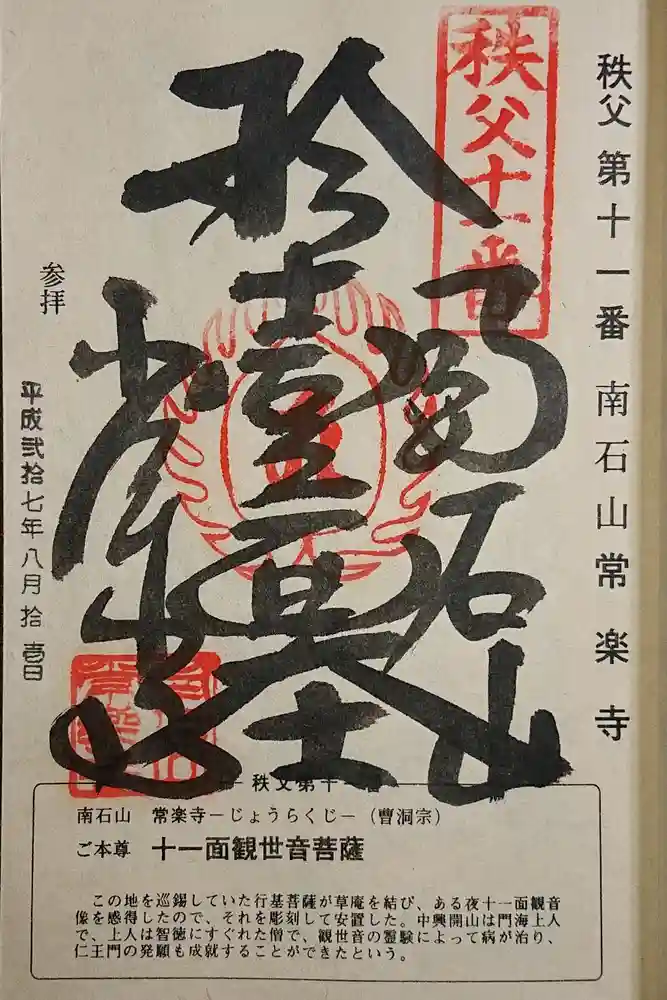 秩父 第十一番 南石山常楽寺
秩父十一番
南石山
参拝
平成弐拾七年八月拾壱日
秩父第十一番
南石山 常楽寺－じょうらくじ－（曹洞宗）
ご本尊 十一面観世音菩薩
この地を巡錫していた行基菩薩が草庵を結び、ある夜十一面観音
像を感得したので、それを彫刻して安置した。中興開山は門海上人
で、上人は智徳にすぐれた僧で、観世音の霊験によって病が治り、
仁王門の発願も成就することができたという。